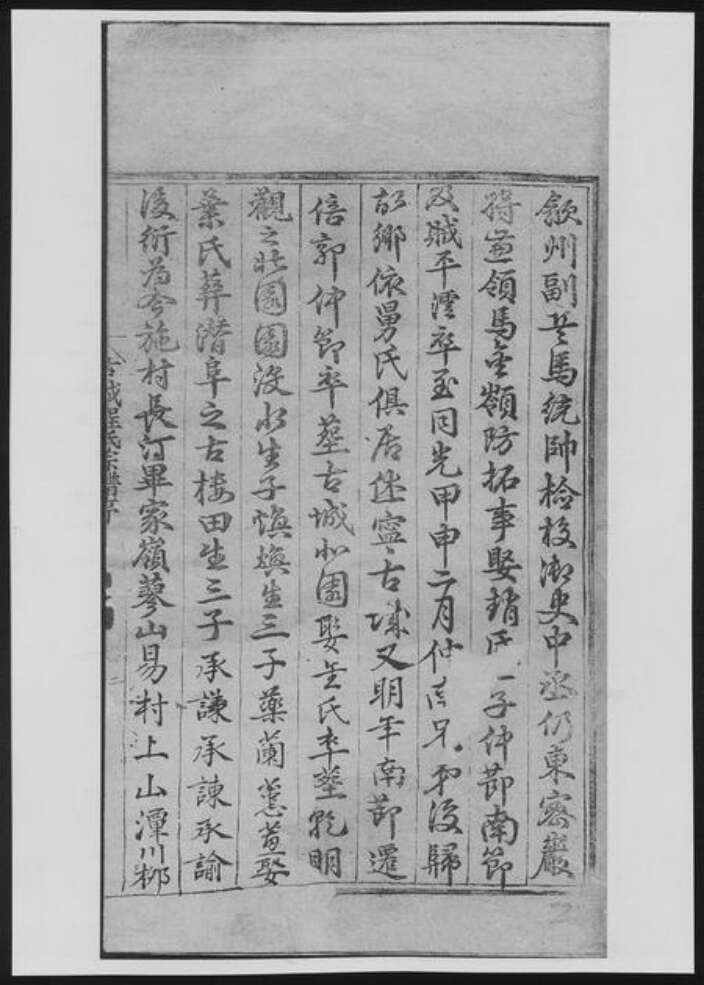 歙州副兵馬統帥檢校御史中丞仍東密巖
將兼領馬金嶺防拓事娶 氏 子仲節南節
及賊平澐卒至同光甲申二月仲 兄 後歸
故鄉依舅氏俱居休寧古城又明年南節遷
倍郭仲節卒葬古城小園娶 氏卒葬 明
觀之北園園 生子 生三子藥蘭蕙 娶
葉氏葬潛阜之古樓田生三子承謙承諫承諭
後衍為今施村長汀畢家嶺蓼山易村上山潭川
古城程氏宗譜序
二